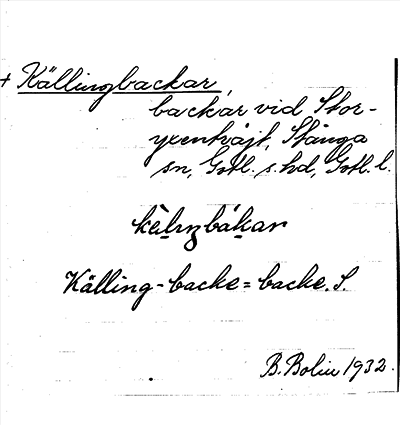 + Källingbackar,
backar vid Stor-
yxenhväjt, Stånga
sn, Gotl. s. hd, Gotl. l.
kèlıŋbákar
Källing-backe = backe. S.
B. Bolin 1932.